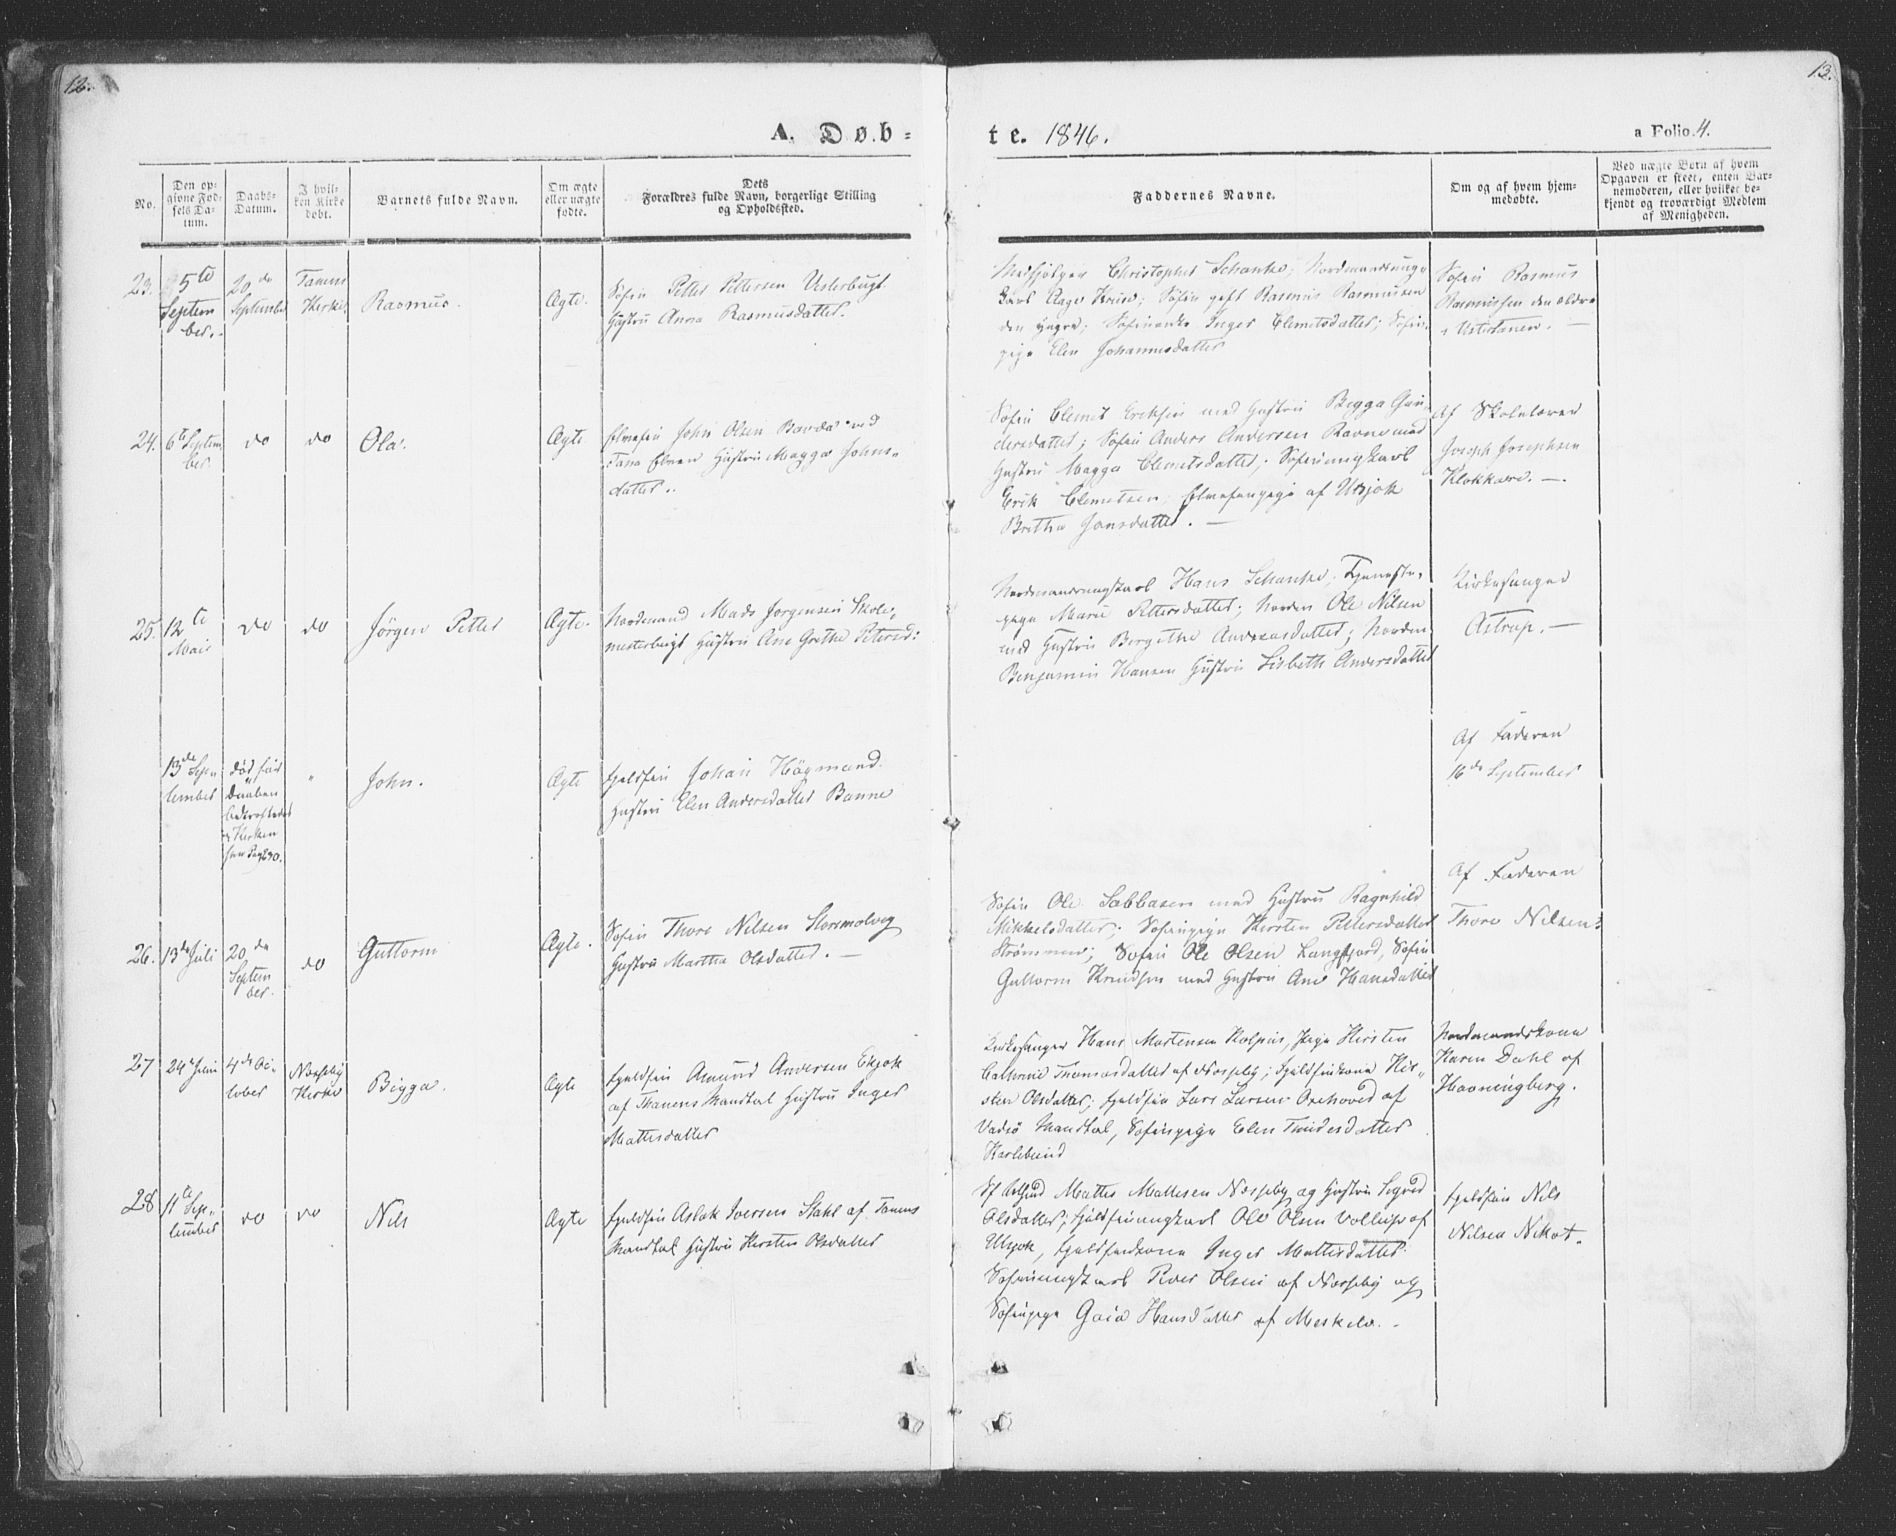 12.
13.
A. Døb-
te. 1846.
a Folio 4.
No.
Den op-
givne Fød-
sels Da-
tum.
Daabs-
Datum.
I hvil-
ken Kirke
døbt.
Barnets fulde Navn.
Om ægte
eller uægte
fødte.
Dets
Forældres fulde Navn, borgerlige Stilling
og Opholdssted.
Faddernes Navne.
Om og af hvem hjem-
medøbte.
Ved uægte Børn af hvem
Opgaven er skeet, enten Bar-
nemoderen, eller hvilket be-
kjendt og troværdigt Medlem
af Menigheden.
23.
5te
Septem
ber.
20de
September
Tanens
Kirke
Rasmus.
Ægte.
Søfin Petter Pettersen Vesterbugt
Hustru Anna Rasmusdatter.
Christopher Schanke; Nordmandsunge
karl Aage Kruse; Søfin gift Rasmus Rasmussen
den yngre; Søfinenke Inger Clemetsdatter; Søfin
pige Elen Johannesdatter
Søfin Rasmus
Rasmussen den ældre
i Vestertanen. —
24.
6te Septem
ber.
do
do
Ola.
Ægte
Elvefin John Olsen Bavda ved
Tana Elven Hustru Magga Johns-
datter..
Søfin Clemet Eriksen med Hustru Bigga Gun-
dersdatter; Søfin Anders Andersen Ravna med
Hustru Magga Clemetsdatter; Søfinungkarl
Erik Clemetsen; Elvefinpige af Utsjok
Britha Jonsdatter. —
Af Skolelærer
Joseph Josephsen
Klokkare. —.
25.
12te
Mai
do
do
Jörgen Petter
Ægte.
Nordmand Mads Jorgensen Skole-
mesterbugt Hustru Ane Grethe Petersd:
Nordmandungkarl Hans Schanke; Tjeneste-
pige Marie Pettersdatter; Norden Ole Nilsen
med Hustru Birgithe Andreasdatter; Norden
Benjamin Hansen Hustru Lisbeth Andersdatter
Kirkesanger
Astrup. —
13de Sep-
tember
død før
Daaben
Kirken
"
John.
Ægte
Fjeldfin Johan Högmand
Hustru Elen Andersdatter Banne
Af Faderen
16de September
26.
13de Juli
20de
Septem
ber.
do
Guttorm
Ægte.
Søfin Thore Nilsen Stormolvig
Hustru Martha Olsdatter. —
Søfin Ole Sabbasen med Hustru Ragnhild
Mikkelsdatter; Søfinpige Kirsten Pettersdatter
Strömmen; Søfin Ole Olsen Langfjord, Søfin
Guttorm Knudsen med Hustru Ane Hansdatter
Af Faderen
Thore Nilsen.
27
29de Juni
4de Oc-
tober
Næsseby
Kirke
Bigga.
Ægte
Fjeldfin Amund Andersen Ekjok
af Thanens Mandtal Hustru Inger
Mattesdatter
Kirkesanger Hans Mortensen Kolpus, Pige Kirsten
Cathrine Thomasdatter af Næsseby; Fjeldfinkone Kir-
sten Olsdatter; Fjeldfin Lars Larsen Oxehoved af
Vadsö Mandtal, Søfinpige Elen Tudesdatter
Karlebund
Nordmandskone
Karen Dahl af
Havningberg.
28
11te Sep-
tember
do
do
Nils
Ægte
Fjeldfin Aslak Iversen Stahl af Tanens
Mandtal Hustru Kirsten Olsdatter
Mattes Mattesen Næsseby og Hustru Sigrid
Olsdatter; Fjeldfinungkarl Ole Olsen Vollup af
Utsjok, Fjeldfinkone Inger Mattisdatter
Søfinungkarl Peder Olsen af Næsseby og
Søfinpige Gaia Hansdatter af Meskelv. -
Fjeldfin Nils
Nilsen Nikot.